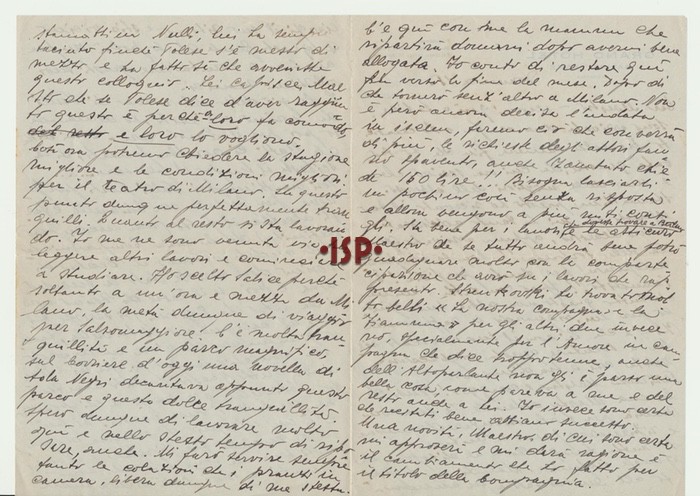 stamattina Nulli, lui ha sempre
taciuto finché Tolese s'è messo di
mezzo e ha fatto sì che avvenisse
questo colloquio. Lei capisce, Mae-
stro che se Tolese dice d'aver raggiun-
to questo è perché a loro fa comodo,
e loro lo vogliono.
Così ora potremo chiedere la stagione
migliore e le condizioni migliori
per il teatro di Milano. Su questo
punto dunque perfettamente tran-
quilli. Quanto al resto si sta lavoran-
do. Io me ne sono venuta via
leggere altri lavori e cominciare
a studiare. Ho scelto Salice perché
soltanto a un'ora e mezza da Mi-
lano, la metà dunque di viaggio
per Salsomaggiore. C'è molta tran-
quillità e un parco magnifico,
sul Corriere d'oggi una novella di
Ada Negri decantava appunto questo
parco e questa dolce tranquillità
spero dunque di lavorare molto
qui e nello stesso tempo di ripo-
sare, anche. Mi farò servire sempre
tanto le colazioni che i pranzi in
camera, libera dunque di me stessa.
C'è qui con me la mamma che
ripartirà domani dopo avermi bene
allogata. Io conto di restare qui
fin verso la fine del mese. Dopo di
che tornerò senz'altro a Milano. Non
è però ancora decisa l'andata
in, faremo ciò che converrà
di più, le richieste degli attori fan-
no spavento, anche
de 150 lire!! Bisogna lasciarli
un pochino così senza risposta
e allora vengono a più miti consi-
gli. Sta bene per i lavori, le assicuro
Maestro che se tutto andrà bene potrò
guadagnare molto con la comparte-
cipazione che avrò sui lavori che rap-
presento. Strenkowski ha trovato mol-
to belli «La nostra compagna» e la
«Fiamma» per gli altri due invece
no, specialmente per l'Amore in cam-
pagna che dice inopportuno, anche
dell'Altoparlante non gli è parsa una
bella cosa come pareva a me e del
resto anche a Lei. Io invece sono certa
che recitati bene abbiano successo.
Una novità, Maestro, di cui sono certa
mi approverà e mi darà ragione è
il cambiamento che ho fatto per
il titolo della Compagnia.
·ISP·